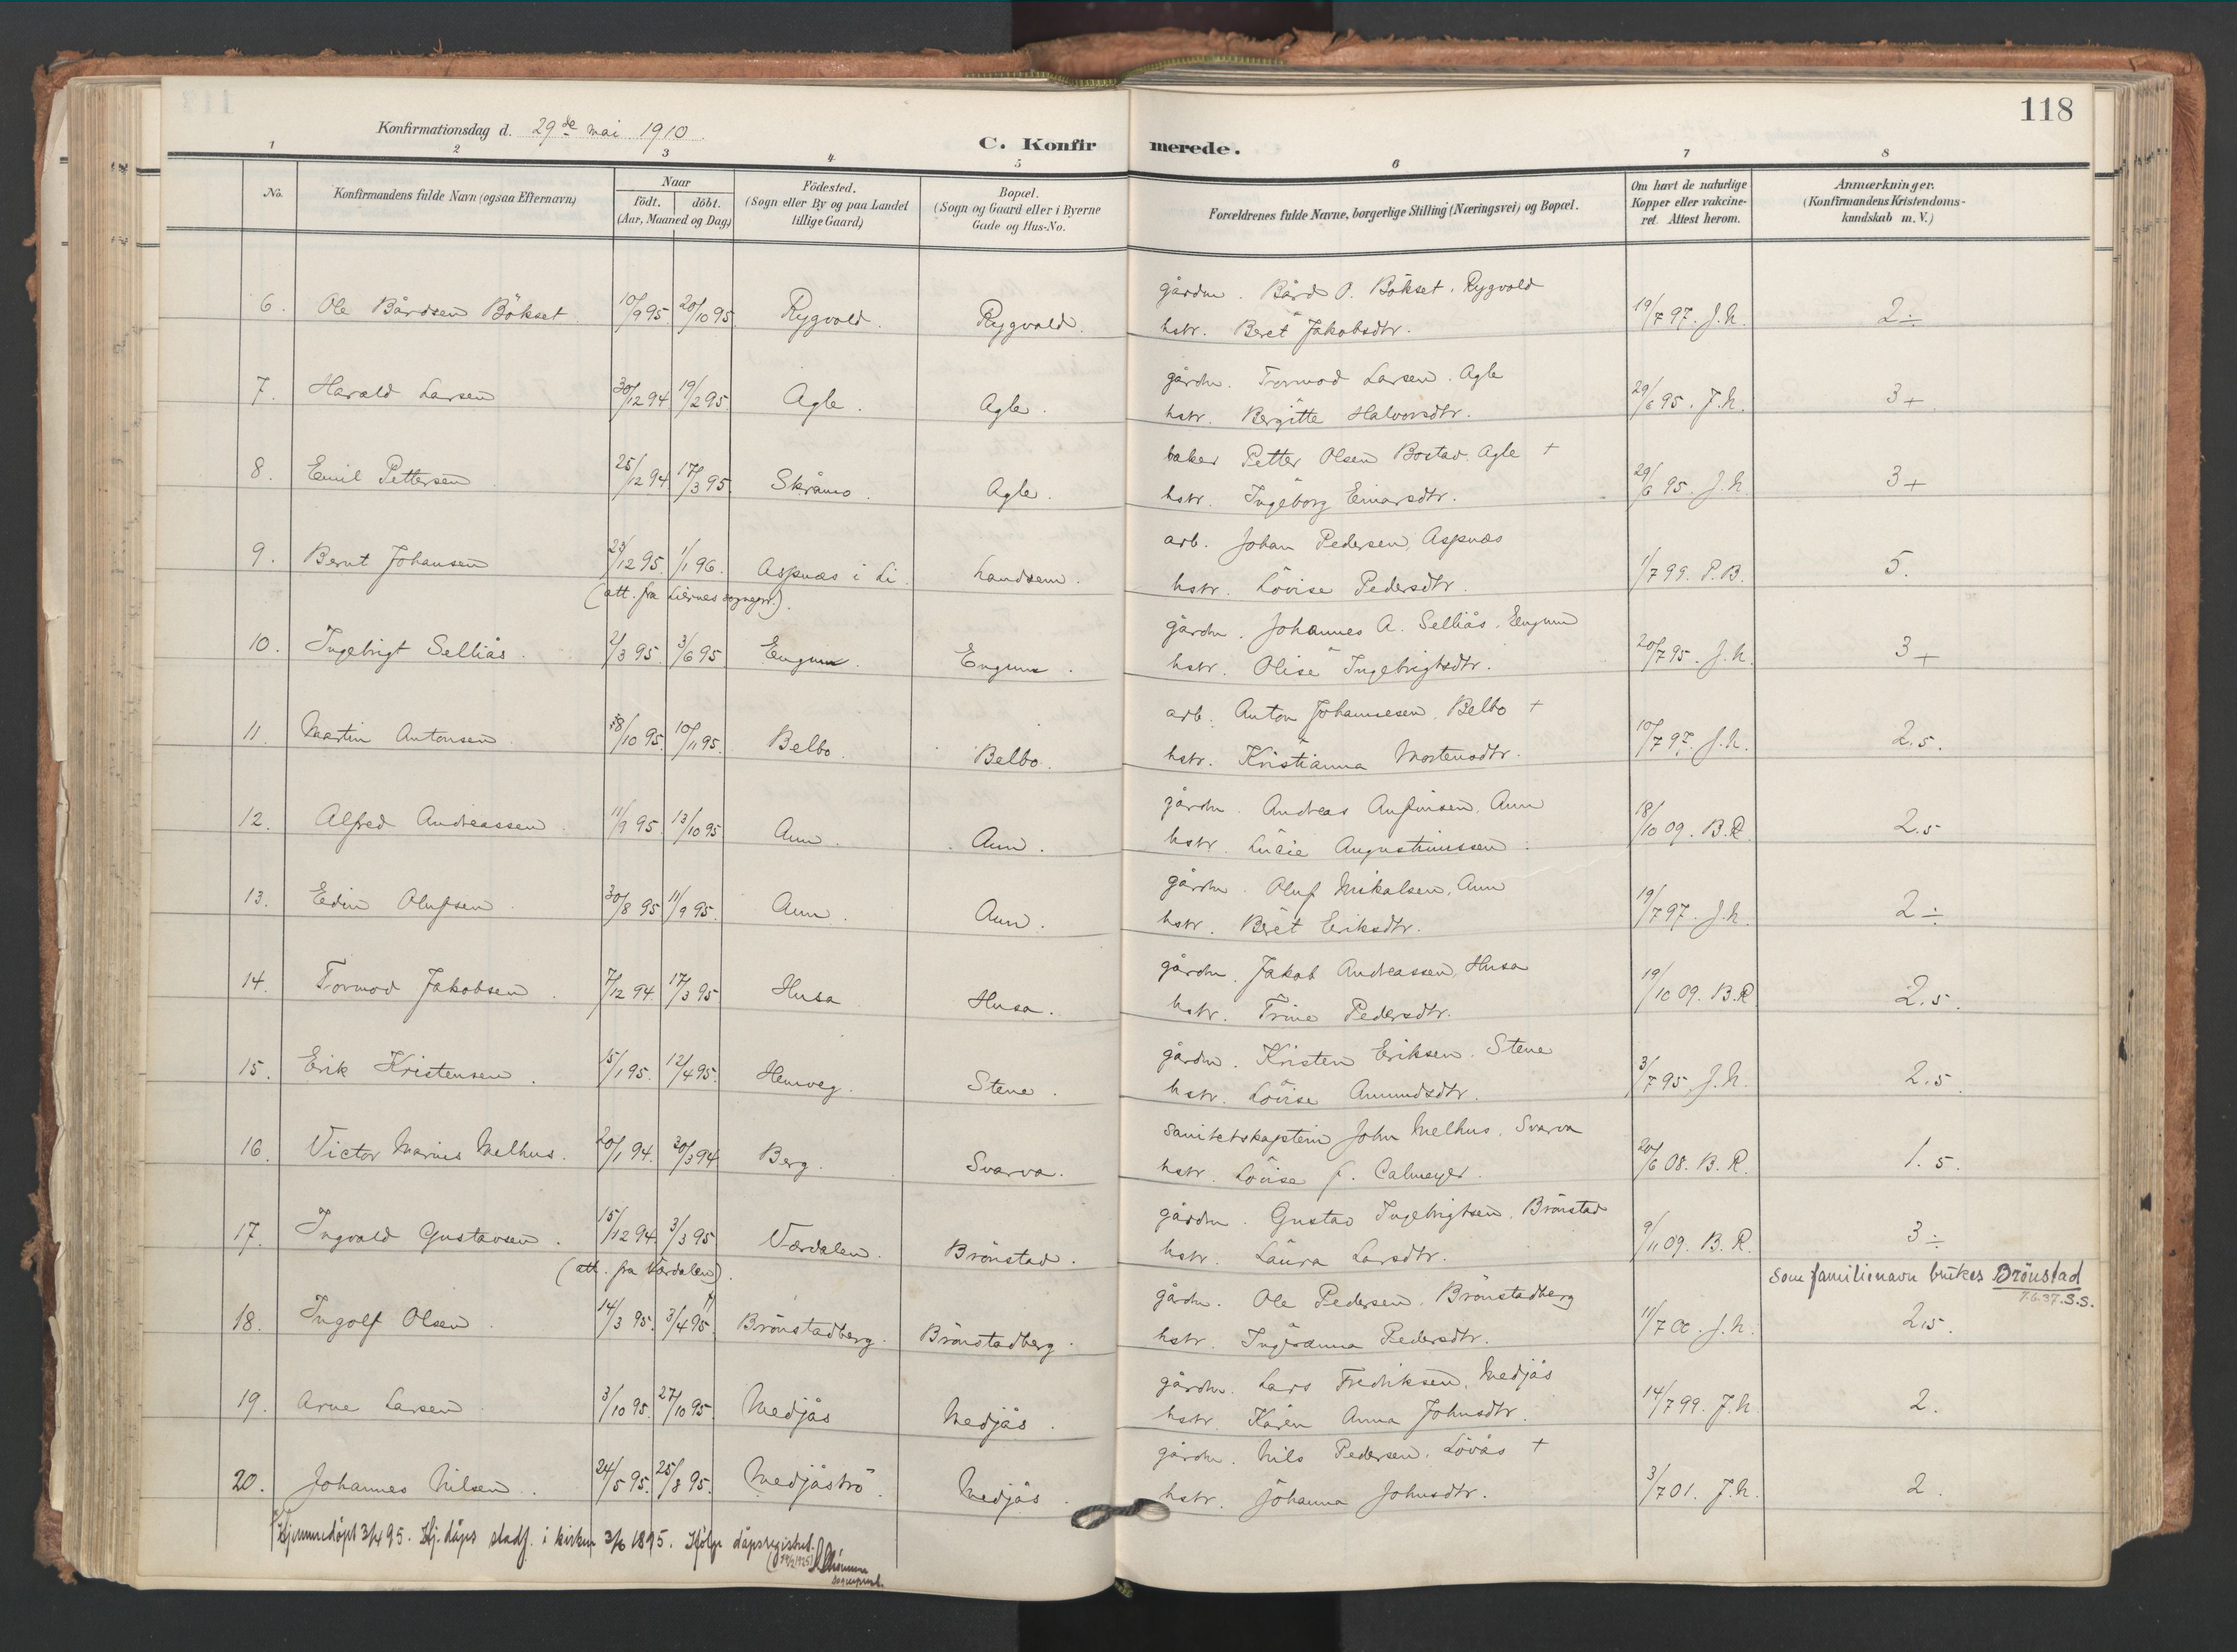 118
Konfirmationsdag d. 29de mai 1910.
C. Konfirmerede.
1 2 3 4 5 6 7 8
No. | Konfirmandens fulde Navn (ogsaa Efternavn) | Naar födt. döbt. (Aar, Maaned og Dag) | Födested. (Sogn eller By og paa Landet tillige Gaard) | Bopæl. (Sogn og Gaard eller i Byerne Gade og Hus-No. | Forældrenes fulde Navne, borgerlige Stilling (Næringsvei) og Bopæl. | Om havt de naturlige Kopper eller vakcineret. Attest herom. | Anmærkninger. (Konfirmandens Kristendomskundskab m. V.)
6. Ole Bårdsen Bökset 10/9 95. 20/10 95. Rygvold. Rygvold. gårdm. Bård O. Bökset. Rygvold
hstr. Beret Jakobsdtr. 19/7 97. J.N. 2÷
7. Harald Larsen 30/12 94 19/2 95. Agle. Agle. gårdm. Tormod Larsen. Agle
hstr. Bergitte Halvorsdtr. 29/6 95. J.N. 3+
8. Emil Pettersen 25/12 94 17/3 95. Skråmo. Agle. baker Petter Olsen Bostad. Agle +
hstr. Ingeborg Einarsdtr. 29/6 95. J.N. 3+
9. Bernt Johansen 23/12 95. 1/1 96. Aspnæs i Li. Landsem. arb. Johan Pedersen, Aspnæs
(att. fra Liernes sogнepr.). hstr. Lovise Pedersdtr. 1/7 99. P.B. 5.
10. Ingebrigt Selliås. 2/3 95. 3/6 95 Engum. Engum. gårdm. Johannes A. Selliås. Engum
hstr. Olise Ingebrigtsdtr. 20/7 95. J.N. 3+
11. Martin Antonsen /10 95. 10/11 95. Belbo. Belbo. arb. Anton Johannesen. Belbo +
hstr. Kristianna Mortensdtr. 10/7 97. J.N. 2.5.
12. Alfred Andreassen. 11/9 95. 13/10 95 Aun. Aun. gårdm. Andreas Anfinsen, Aun
hstr. Lucie Augustinussen. 18/10 09. B.R. 2.5
13. Edin Olufsen 30/8 95 11/9 95. Aun. Aun. gårdm. Oluf Mikalsen, Aun
hstr. Beret Eriksdtr. 19/7 97. J.N. 2÷
14. Tormod Jakobsen. 7/12 94. 17/3 95 Husa Husa. gårdm. Jakob Andreassen, Husa
hstr. Trine Pedersdtr. 19/10 09. B.R 2.5.
15. Erik Kristensen. 15/1 95. 12/4 95. Hemveg. Stene. gårdm. Kristen Eriksen. Stene
hstr. Lovise Amundsdtr. 3/7 95. J.N. 2.5.
16. Victor Marius Melhus. 20/1 94. 30/3 94 Berg. Svarva. Sanitetskaptein John Melhus. Svarva
hstr. Lovise f. Calmeyer. 20/6 08. B.R. 1.5.
17. Ingvald Gustavsen. 15/12 94. 3/3 95 Værdalen. Brönstad. gårdm. Gustav Ingebrigtsen. Brönstad
(att. fra Værdalen). hstr. Laura Larsdtr. 9/11 09. B.R. 3÷
Som familienavn brukes Brönstad
7.6.37. S.S.
18. Ingolf Olsen. 14/3 95. 3/4 95. Brönstadberg. Brönstadberg. gårdm. Ole Pedersen. Brönstadberg
hstr. Ingeranna Pedersdtr. 11/7 00. J.N. 2,5.
19. Arne Larsen 3/10 95. 27/10 95. Medjås Medjås. gårdm. Lars Fredriksen. Medjås
hstr Karen Anna Johnsdtr. 14/7 99. J.N 2.
20. Johannes Nilsen. 24/5 95. 25/8 95. Medjåströ. Medjås. gårdm. Nils Pedersen. Lövås +
hstr. Johanna Johnsdtr. 3/7 01. J.N. 2.
Hjemmedöpt 3/4 95. Hj. dåps stadf. i kirken 3/6 1895. Ifölge dåpsregistret.
sogneprest.